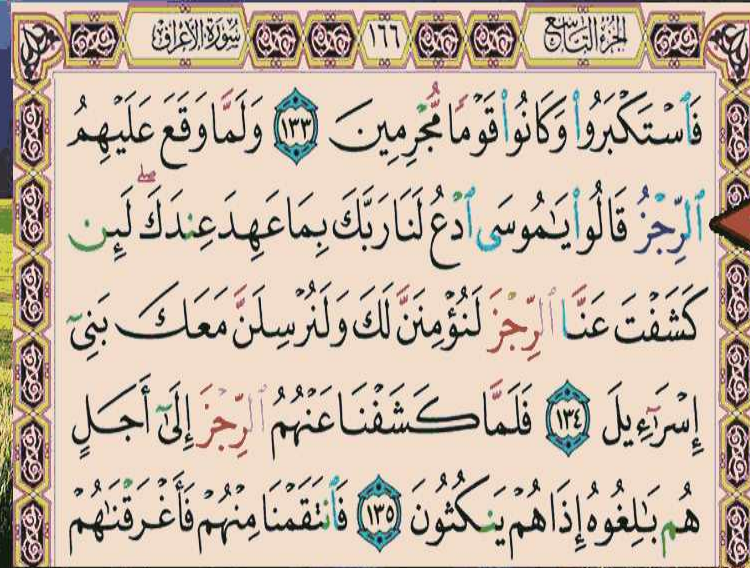 الجزء التاسع ١٦٦ سورة الأعراف
فَٱسْتَكْبَرُوا۟ وَكَانُوا۟ قَوْمًا مُّجْرِمِينَ ١٣٣ وَلَمَّا وَقَعَ عَلَيْهِمُ
ٱلرِّجْزُ قَالُوا۟ يَٰمُوسَى ٱدْعُ لَنَا رَبَّكَ بِمَا عَهِدَ عِندَكَ ۖ لَئِن
كَشَفْتَ عَنَّا ٱلرِّجْزَ لَنُؤْمِنَنَّ لَكَ وَلَنُرْسِلَنَّ مَعَكَ بَنِىٓ
إِسْرَٰٓءِيلَ ١٣٤ فَلَمَّا كَشَفْنَا عَنْهُمُ ٱلرِّجْزَ إِلَىٰٓ أَجَلٍ
هُم بَٰلِغُوهُ إِذَا هُمْ يَنكُثُونَ ١٣٥ فَٱنتَقَمْنَا مِنْهُمْ فَأَغْرَقْنَٰهُمْ